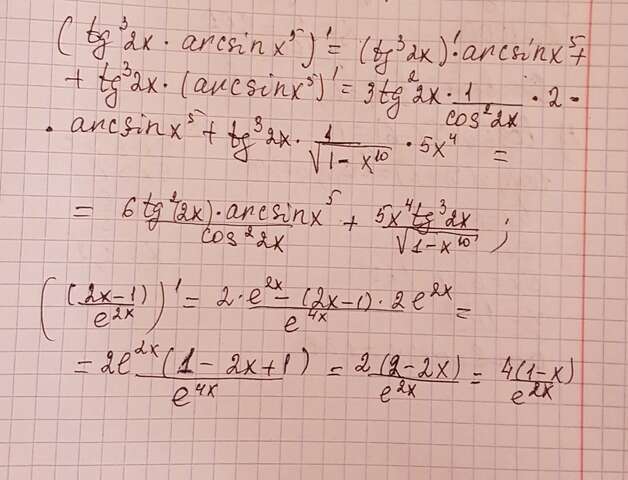 (tg³2x · arcsinx⁵)' = (tg³2x)' · arcsinx⁵ +
+ tg³2x · (arcsinx⁵)' = 3tg²2x · 1/cos²2x · 2 ·
· arcsinx⁵ + tg³2x · 1/√(1-x¹⁰) · 5x⁴ =
= 6tg²(2x) · arcsinx⁵/cos²2x + 5x⁴tg³2x/√(1-x¹⁰) ;
((2x-1)/e²ˣ)' = (2·e²ˣ - (2x-1)·2e²ˣ)/e⁴ˣ =
= 2e²ˣ(1-2x+1)/e⁴ˣ = 2(2-2x)/e²ˣ = 4(1-x)/e²ˣ